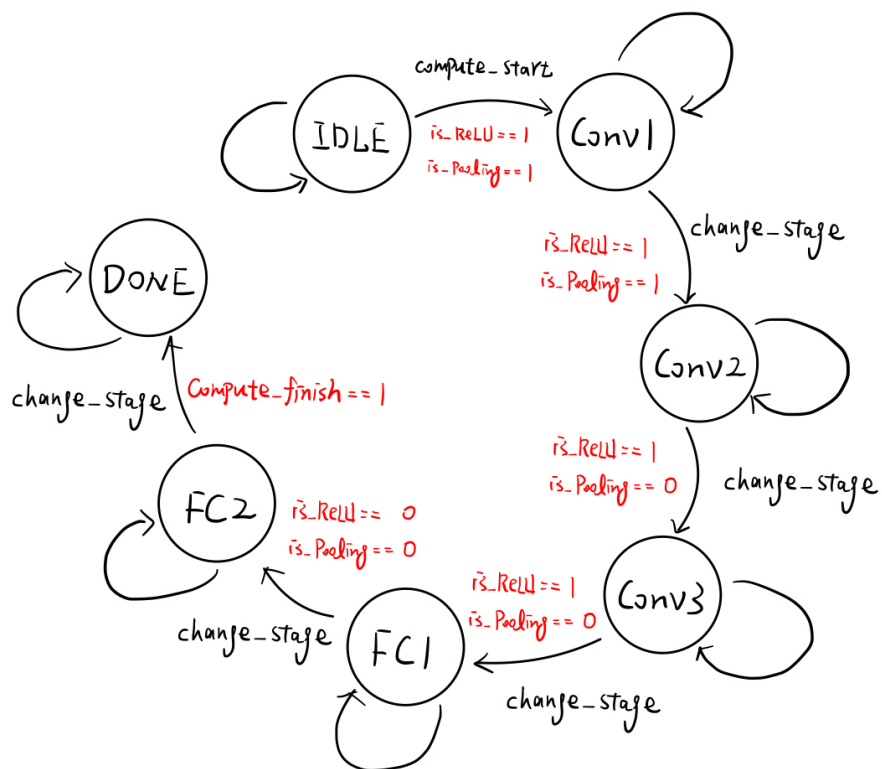 compute_start
IDLE
is_ReLU==1
is_Pooling==1
Conv1
change_stage
is_ReLU==1
is_Pooling==1
DONE
Conv2
Compute_finish==1
change_stage
is_ReLU==1
is_Pooling==0
change_stage
FC2
is_ReLU== 0
is_Pooling==0
is_ReLU==1
is_Pooling==0
Conv3
change_stage
FC1
change_stage